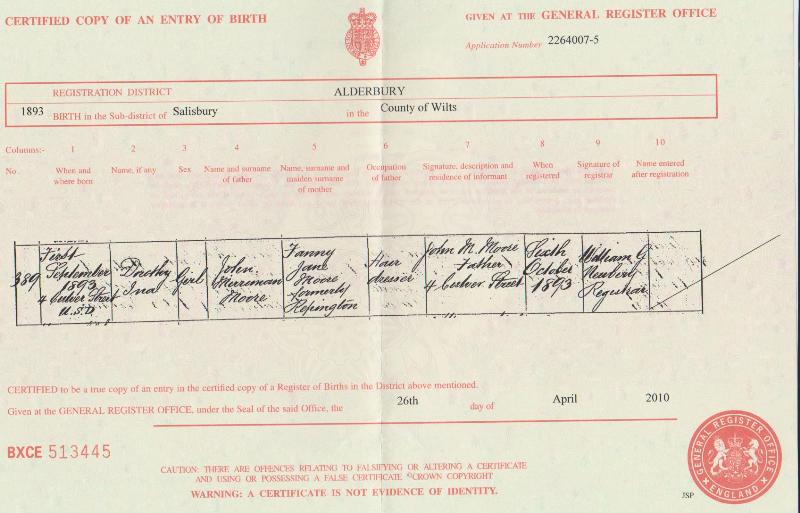 CERTIFIED COPY OF AN ENTRY OF BIRTH
GIVEN AT THE GENERAL REGISTER OFFICE
Application Number 2264007-5
REGISTRATION DISTRICT ALDERBURY
1893 BIRTH in the Sub-district of Salisbury in the County of Wilts
Columns:- 1 2 3 4 5 6 7 8 9 10
No. When and where born Name, if any Sex Name and surname of father Name, surname and maiden surname of mother Occupation of father Signature, description and residence of informant When registered Signature of registrar Name entered after registration
389
First
September
1893
4 Culver Street
U.S.D.
Dorothy
Ina
Girl
John
Merriman
Moore
Fanny
Jane
Moore
formerly
Hair
dresser
John M. Moore
Father
4 Culver Street
Sixth
October
1893
William G
Registrar
CERTIFIED to be a true copy of an entry in the certified copy of a Register of Births in the District above mentioned.
Given at the GENERAL REGISTER OFFICE, under the Seal of the said Office, the 26th day of April 2010
BXCE 513445
CAUTION: THERE ARE OFFENCES RELATING TO FALSIFYING OR ALTERING A CERTIFICATE
AND USING OR POSSESSING A FALSE CERTIFICATE ©CROWN COPYRIGHT
WARNING: A CERTIFICATE IS NOT EVIDENCE OF IDENTITY.
JSP
GENERAL REGISTER OFFICE
ENGLAND